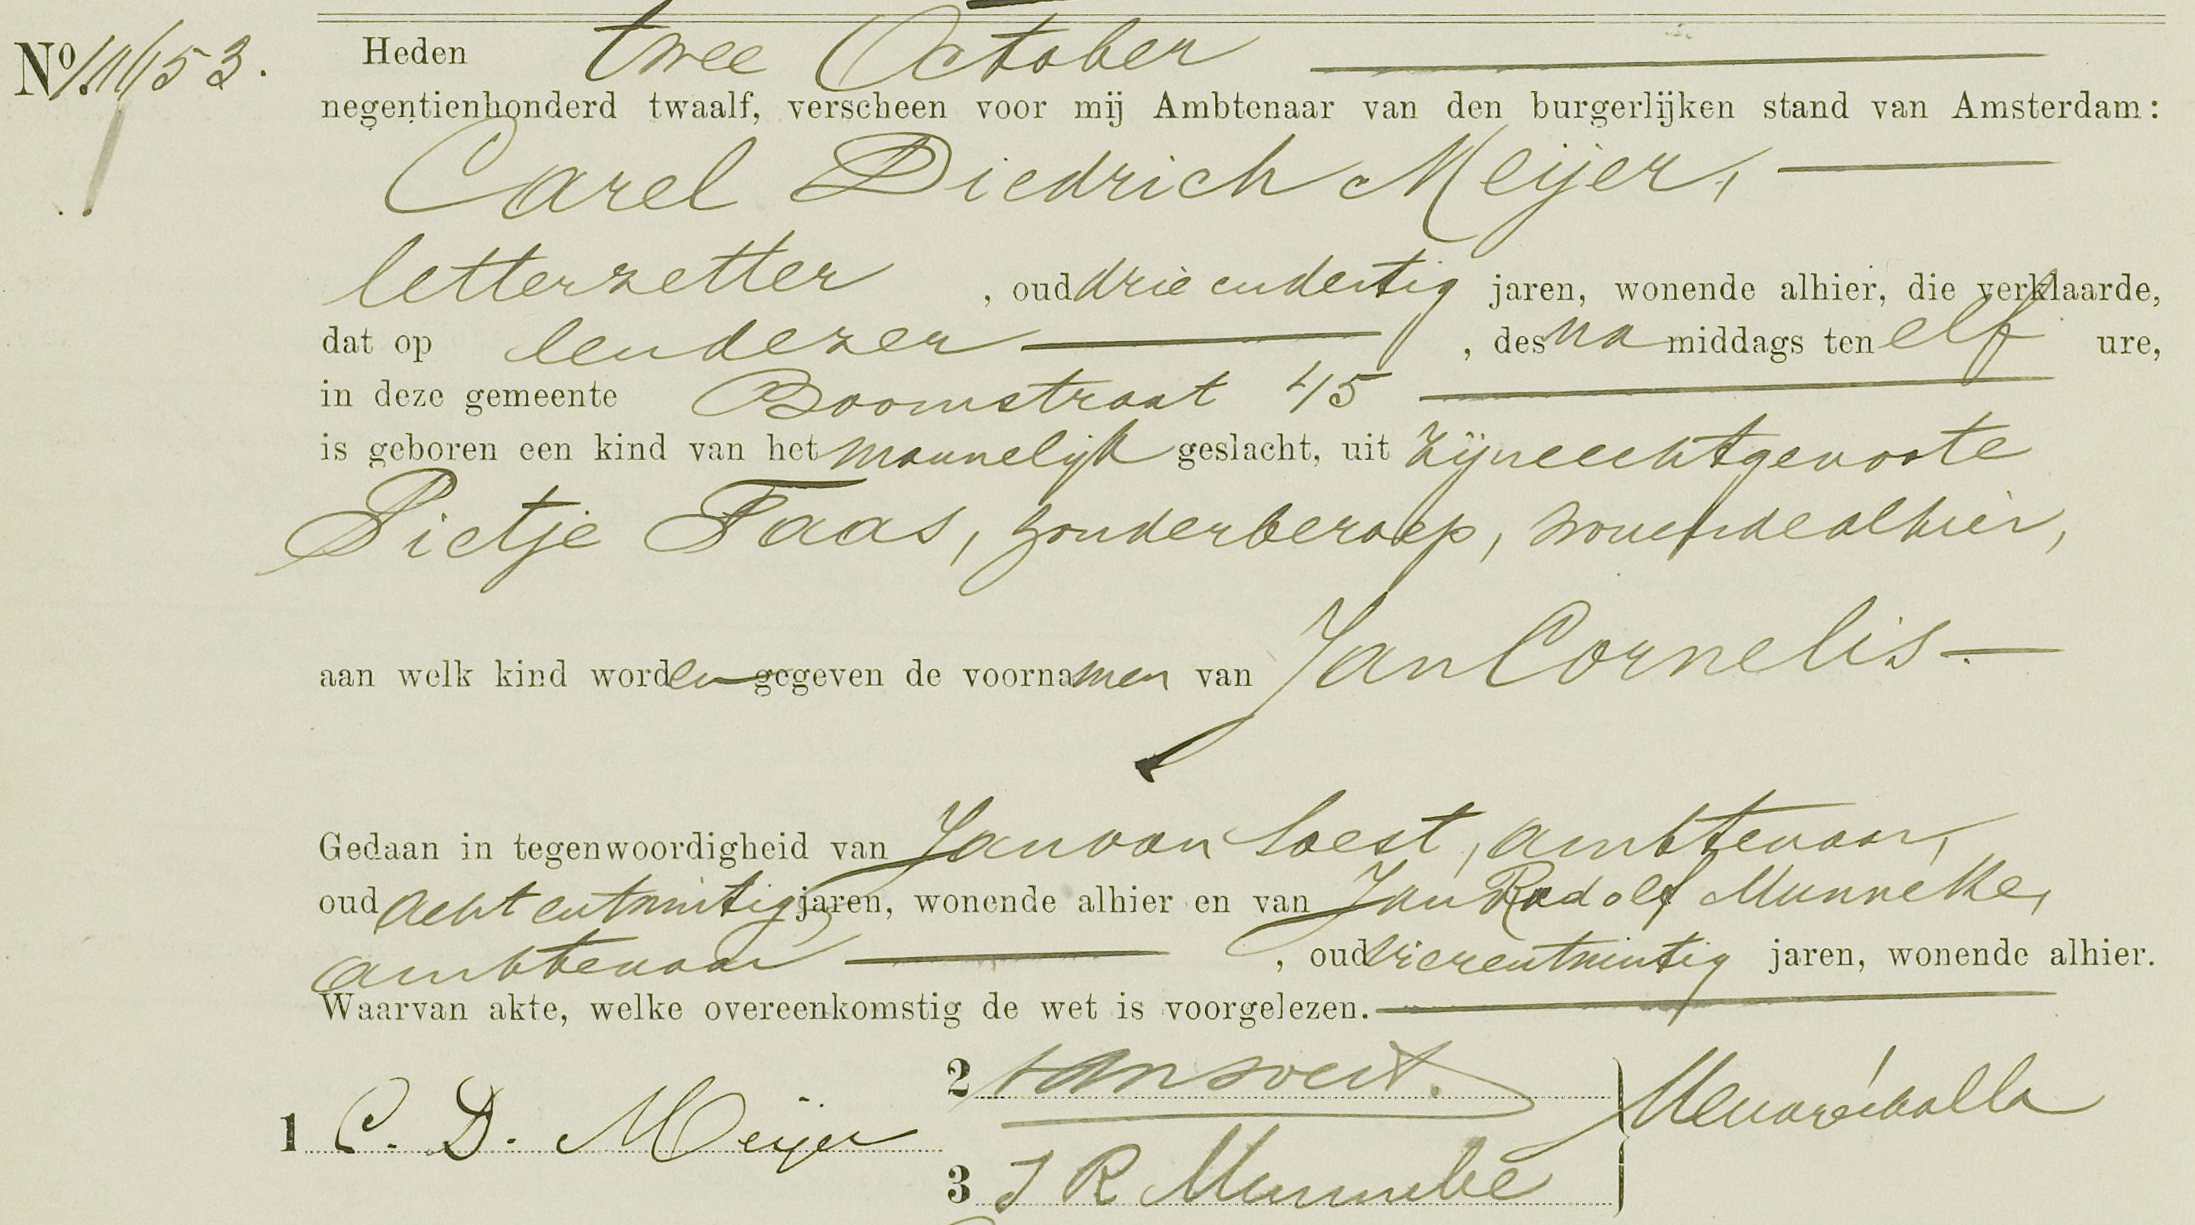 No. 11653. Heden twee October
negentienhonderd twaalf, verscheen voor mij Ambtenaar van den burgerlijken stand van Amsterdam:
Carel Diedrich Meijer,
letterzetter , oud drie en dertig jaren, wonende alhier, die verklaarde,
dat op een dezer , des na middags ten elf ure,
in deze gemeente Boomstraat 45
is geboren een kind van het mannelijk geslacht, uit zijne echtgenoote
Pietje Faas, zonder beroep, wonende alhier,
aan welk kind worden gegeven de voornamen van Jan Cornelis
Gedaan in tegenwoordigheid van Jan van Soest, ambtenaar,
oud acht en twintig jaren, wonende alhier en van Jan Rudolf Munneke,
ambtenaar , oud vier en twintig jaren, wonende alhier.
Waarvan akte, welke overeenkomstig de wet is voorgelezen.
2 van Soest.
1 C. D. Meijer
3 J R Munneke